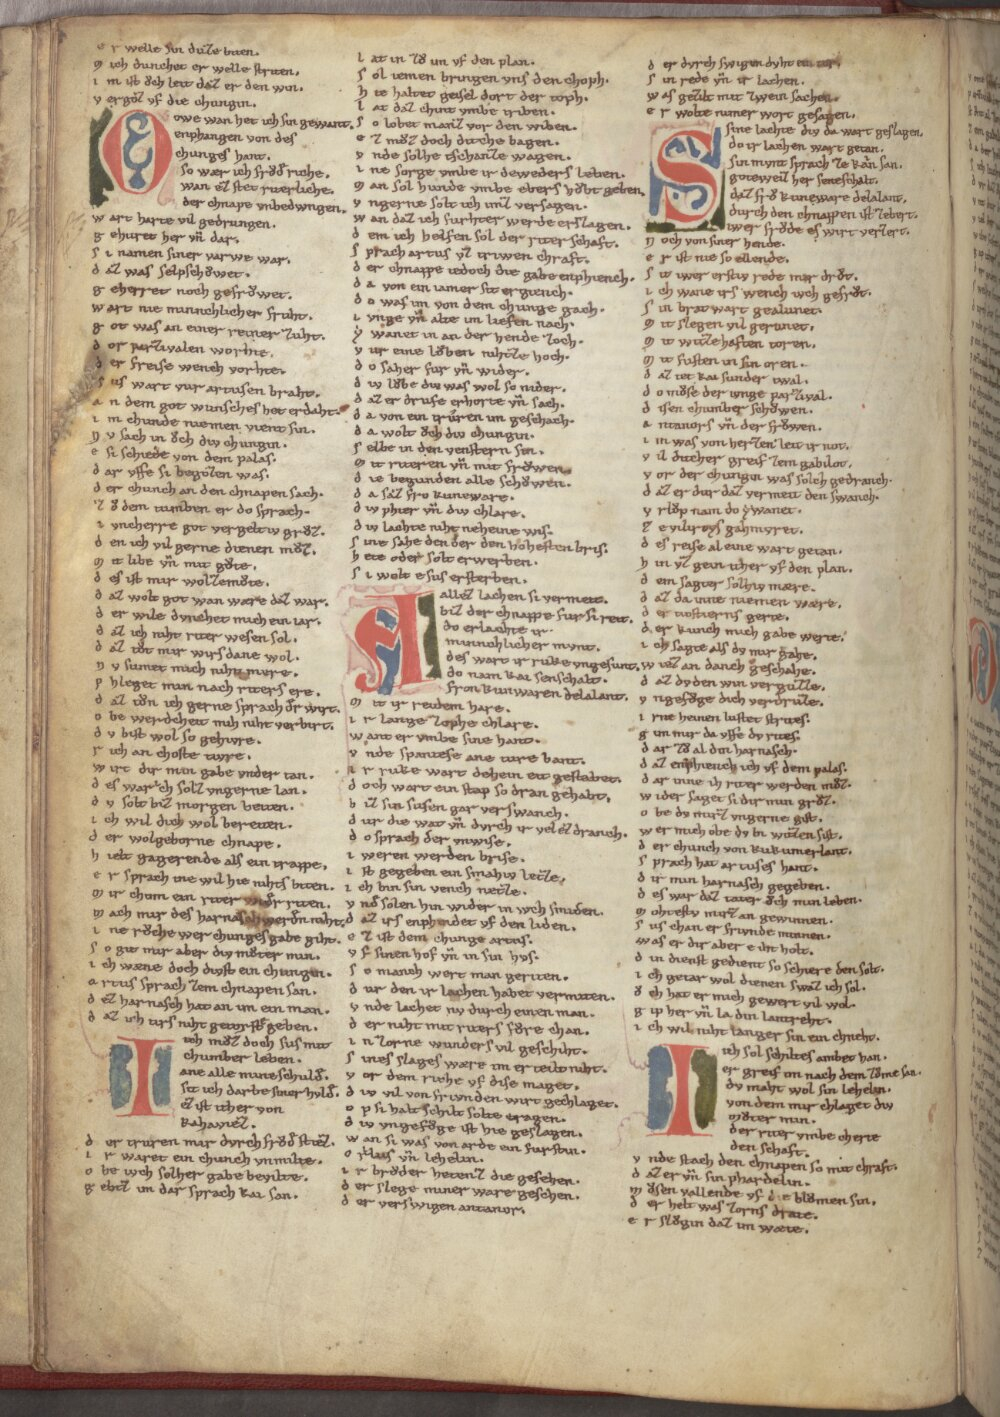 e r welle sin dule butten.
m ich dunchet er welle striten.
i m ist ŏch leit daz er den win.
v ergoz vf die chungin.
O owe wan het ich sin gewant.
enphangen von des
chunges hant.
so wær ich frŏdē riche.
wan ez stet riterliche.
der chnape vnbedwngen.
w art harte vil gedrungen.
g ehuret her vn̄ dar.
s i namen siner varwe war.
d az was selpschŏwet.
g eherret noch gefrŏwet.
w art nie minnichlicher fruht.
g ot was an einer reiner zuht.
d or parzivalen worhte.
d er freise wench vorhte.
s us wart vur artusen braht.
a n dem got wunsches het erdaht.
i m chunde niemen vient sin.
n v sach in ŏch diw chungin.
e si schiede von dem palas.
d ar vffe si begozen was.
d er chunch an den chnapen sach.
z ŏ dem tumben er do sprach.
i vncherre got vergelt iv grŏz.
d en ich vil gerne dienen mŏz.
m it libe vn̄ mit gŏte.
d es ist mir wol zemŏte.
d az wolt got wan wære daz war.
d er wile dvnchet mich ein iar.
d az ich niht riter wesen sol.
d az tŏt mir wirs dane wol.
n v sumet mich niht mere.
p hleget min nach riters ere.
d az tŏn ich gerne sprach der wirt.
o be werdcheit mich niht verbirt.
d v bist wol so gehivre.
r ich an choste tivre.
w irt dir min gabe vnder tan.
d es war ich solz vngerne lan.
d v solt biz morgen beiten.
i ch wil dich wol bereiten.
d er wolgeborne chnape.
h ielt gagerende als ein trappe.
e r sprach ine wil hie nihts biten.
m ir chom ein riter widr riten.
m ach mir des harnasch werdn̄ niht.
i ne rŏche wer chunges gabe giht.
s o git mir aber div mŏter min.
i ch wæne doch divst ein chungin.
a rtus sprach zem chnapen san.
d ez harnasch hat an im ein man.
d az ich dirs niht getorste geben.
I ich mŏz doch sus mit
chumber leben.
ane alle mine schulđ.
sit ich darbe siner hulđ.
ez ist ither von
kahaviez.
d er truren mir dvrch frŏđ stiez.
i r waret ein chunch vnmilte.
o be iwch solher gabe bevilte.
g ebtz im dar sprach kai san.
l at in zŏ im vf den plan.
s ol iemen bringen vns den choph.
h ie haltet geisel dort der toph.
l at daz chint vmbe triben.
s o lobet manz vor den wiben.
e z mŏz doch diche bagen.
v nde solhe tschanze wagen.
i ne sorge vmbe ir deweders leben.
m an sol hunde vmbe ebers hŏbt geben.
v ngerne solt ich imz versagen.
w an daz ich furhte er werde erslagen.
d em ich helfen sol der riter schaft.
s prach artus vz triwen chraft.
d er chnappe iedoch die gabe enphiench.
d a von ein iamer sit ergiench.
d o was im von dem chunge gach.
i vnge vn̄ alte im liefen nach.
y wanet in an der hende zoch.
v ur eine lŏben nihtze hoch.
d o saher fur vn̄ wider.
d iv lŏbe diw was wol so nider.
d az er druffe erhorte vn̄ sach.
d a von ein trŭren im geschach.
d a wolt ŏch diw chungin.
s elbe in den venstern sin.
m it riteren vn̄ mit frŏwen.
d ie begunden alle schŏwen.
d a saz frŏ kuneware.
d iw phier vn̄ diw chlare.
d iw lachte niht neheine wis.
s ine sahe den der den hohesten bris.
h ete oder solt erwerben.
s i wolt e sus ersterben.
A allez lachen si vermeit.
biz der chnappe fur si reit.
do erlachte ir
minnichlicher mvnt.
des wart ir ruke vngesunt.
do nam kai senschalt.
frŏn kunwaren delalant.
m it ir reidem hare.
i r lange zophe chlare.
w ant er vmbe sine hant.
v nde spantese ane ture bant.
i r ruke wart dehein eit gestabet.
d och wart ein stap so dran gehabt.
b iz sin susen gar verswanch.
d ur die wat vn̄ dvrch ir vel ez dranch.
d o sprach der vnwise.
i weren werden brise.
i st gegeben ein smahiv letze.
i ch bin sin vench netze.
v nđ solen hin wider in iwch smiden.
d az irs enphindet vf den liden.
e z ist dem chunge artus.
v f sinen hof vn̄ in sin hvs.
s o manch wert man geriten.
d ur den ir lachen habet vermiten.
v nde lachet nv durch einen man.
d er niht mit riters fŏre chan.
i n zorne wunders vil geschiht.
s ines slages wære im erteilt niht.
v or dem riche vf dise maget.
d iw vil von friwnden wirt gechlaget.
o p si halt schilt solte tragen.
d iw vngefŏge ist hie geslagen.
w an si was von arde ein furstin.
o rilus vn̄ lehelin.
i r brŏder hetenz die gesehen.
d er slege miner ware geschen.
d er verswigen antanor.
d er dvrch swigin dvht ein tor.
s in rede vn̄ ir lachen.
w as gezilt mit zwein sachen.
e r wolte nimer wort gesagen.
S sine lachte diw da wart geslagen.
do ir lachen wart getan.
sin mvnt sprach ze kān san.
goteweiz her seneschalt.
daz frŏ kuneware delalant.
durch den chnappen ist zebert.
iwer frŏde es wirt verzert.
n och von siner hende.
e r ist nie so ellende.
s it iwer erstiv rede mir drŏt.
i ch wæne irs wench iwch gefrŏt.
s in brat wart gealunet.
m it slegen vil gerunet.
m it witzehaften toren.
m it fusten in sin oren.
d az tet kai sunder twal.
d o mŏse der ivnge parzival.
d isen chumber schŏwen.
a ntanors vn̄ der frŏwen.
i m was von herzen leit ir not.
v il dicher greif zem gabilot.
v or der chungin was solch gedranch.
d az er dur daz vermeit den swanch.
v rlŏp nam do ẏwanet.
z e vilirŏys gahmvret.
d es reise al eine wart getan.
h in vz gein ither vf den plan.
d em sagter solhiv mære.
d az da inne niemen wære.
d er tiostierns gerte.
d er kunch mich gabe werte.
i ch sagte als dv mir gahe.
w iez an danch geschahe.
d az dv den win vergutze.
v ngefŏge dich verdrutze.
i rne heinen lustet strites.
g im mir da vffe dv rites.
d ar zŏ al din harnasch.
d az enphiench ich vf dem palas.
d ar inne ih riter werden mŏz.
w ider saget si dir min grŏz.
o be dv mirz vngerne gist.
w er mich obe dv bi witzen sist.
d er chunch von kukumerlant.
s prach hat artuses hant.
d ir min harnasch gegeben.
d es war daz tater ŏch min leben.
m ohtestv mirz an gewinnen.
s us chan er friwnde minnen.
w as er dir aber e iht holt.
d in dienst gedient so schiere den solt.
i ch getar wol dienen swaz ich sol.
ŏ ch hat er mich gewert vil wol.
g ip her vn̄ la din lantreht.
i ch wil niht langer sin ein chneht.
I ich sol schiltes ambet han.
er greif im nach dem zŏme san.
dv maht wol sin lehelin.
von dem mir chlaget diw
mŏter min.
der riter vmbe cherte
den schaft.
v nde stach den chnapen so mit chraft.
d az er vn̄ sin phardelin.
m ŏsen vallende vf die blŏmen sin.
d er helt was zorns drate.
e r slŏgin daz im wæte.